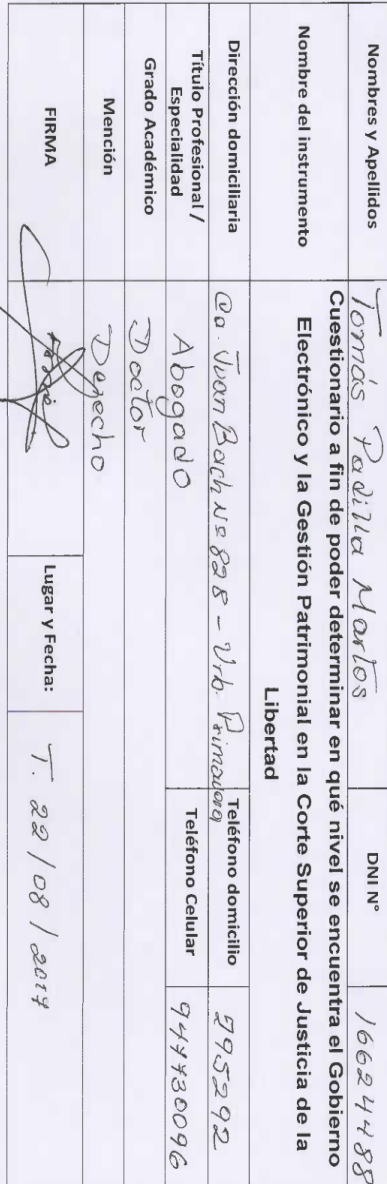 Nombres y Apellidos Tomás Padilla Martos DNI N° 16624488
Nombre del instrumento Cuestionario a fin de poder determinar en qué nivel se encuentra el Gobierno
Electrónico y la Gestión Patrimonial en la Corte Superior de Justicia de la
Libertad
Dirección domiciliaria Ca. Juan Bach Nº 828 - Urb. Primavera Teléfono domicilio 295292
Título Profesional /
Especialidad Abogado Teléfono Celular
Grado Académico Doctor
Mención Derecho
FIRMA Lugar y Fecha: T. 22/08/2017